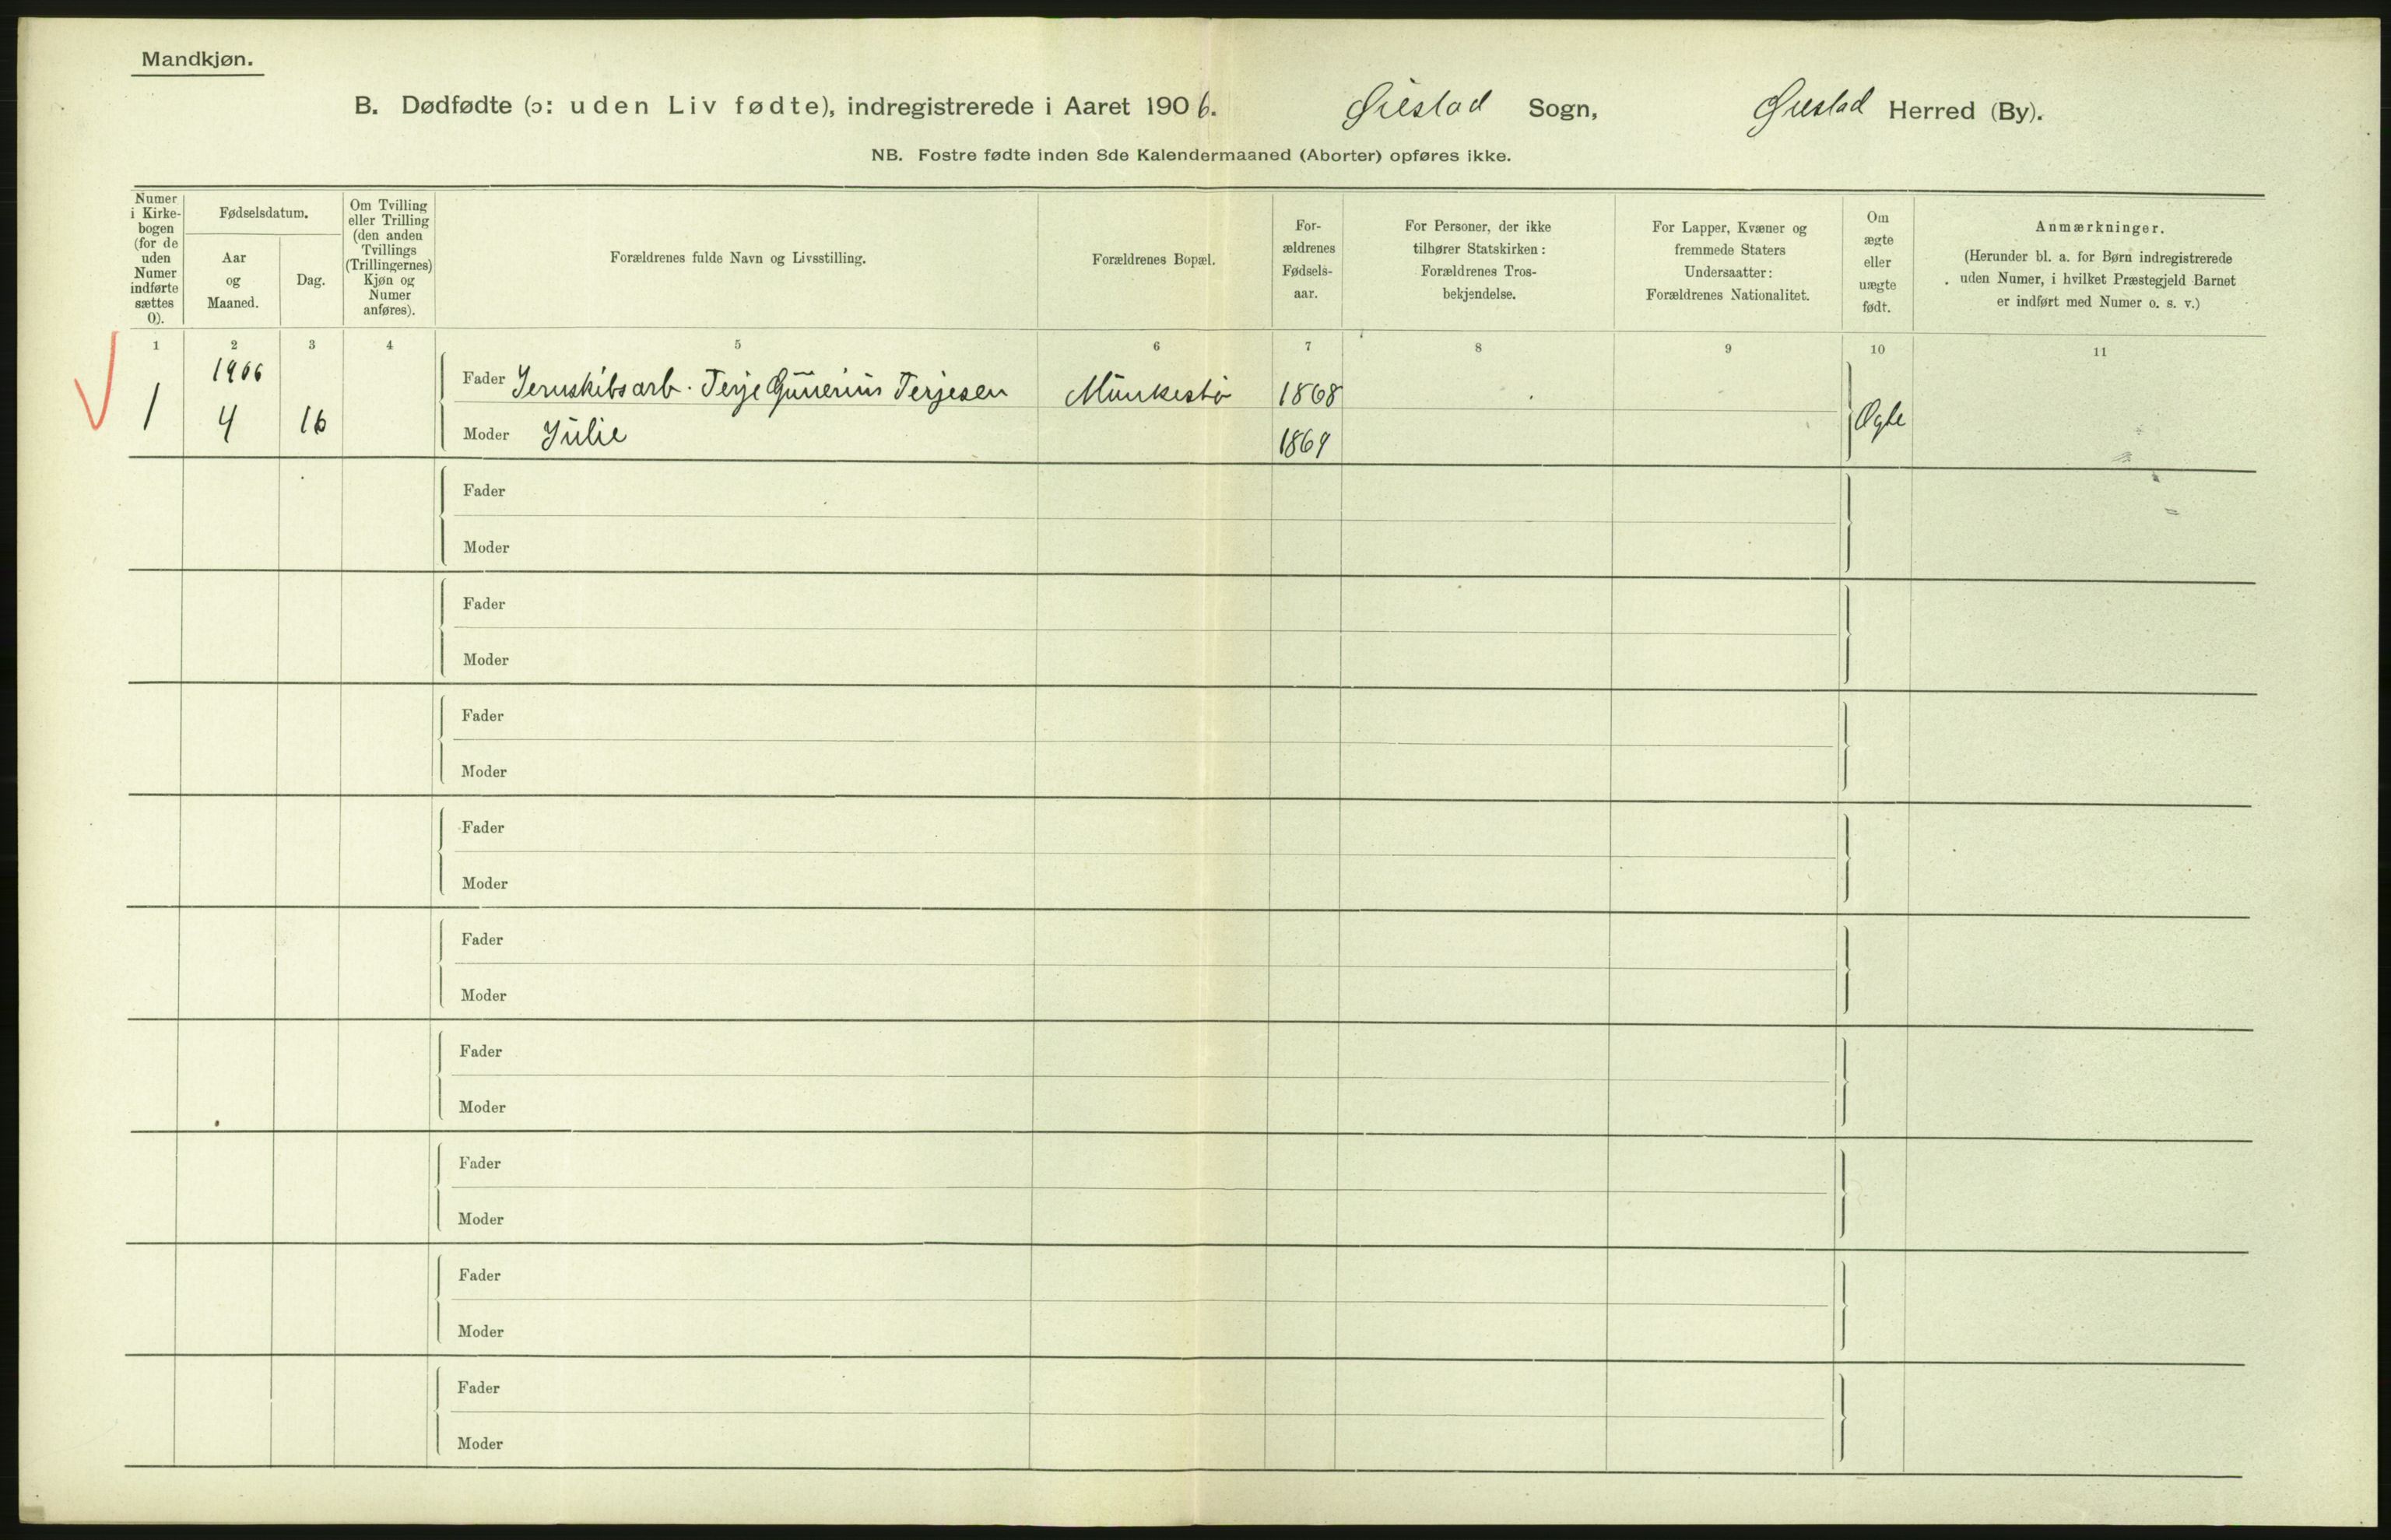 Mandkjøn.
B. Dødfødte (ɔ: uden Liv fødte), indregistrerede i Aaret 1906. Øiestad Sogn, Øiestad Herred (By).
NB. Fostre fødte inden 8de Kalendermaaned (Aborter) opføres ikke.
Numer i Kirke-bogen (for de uden Numer indførte sættes 0).
Fødselsdatum.
Aar og Maaned.
Dag.
Om Tvilling eller Trilling (den anden Tvillings (Trillingernes) Kjøn og Numer anføres).
Forældrenes fulde Navn og Livsstilling.
Forældrenes Bopæl.
For-ældrenes Fødsels-aar.
For Personer, der ikke tilhører Statskirken: Forældrenes Tros-bekjendelse.
For Lapper, Kvæner og fremmede Staters Undersaatter: Forældrenes Nationalitet.
Om ægte eller uægte født.
Anmærkninger.
(Herunder bl. a. for Børn indregistrerede uden Numer, i hvilket Præstegjeld Barnet er indført med Numer o. s. v.)
1 2 3 4 5 6 7 8 9 10 11
1906
1 4 16
Fader Jernskibsarb. Terje Gunerius Terjesen Munkesbø 1868
Moder Julie 1869
Ægte
Fader
Moder
Fader
Moder
Fader
Moder
Fader
Moder
Fader
Moder
Fader
Moder
Fader
Moder
Fader
Moder
Fader
Moder